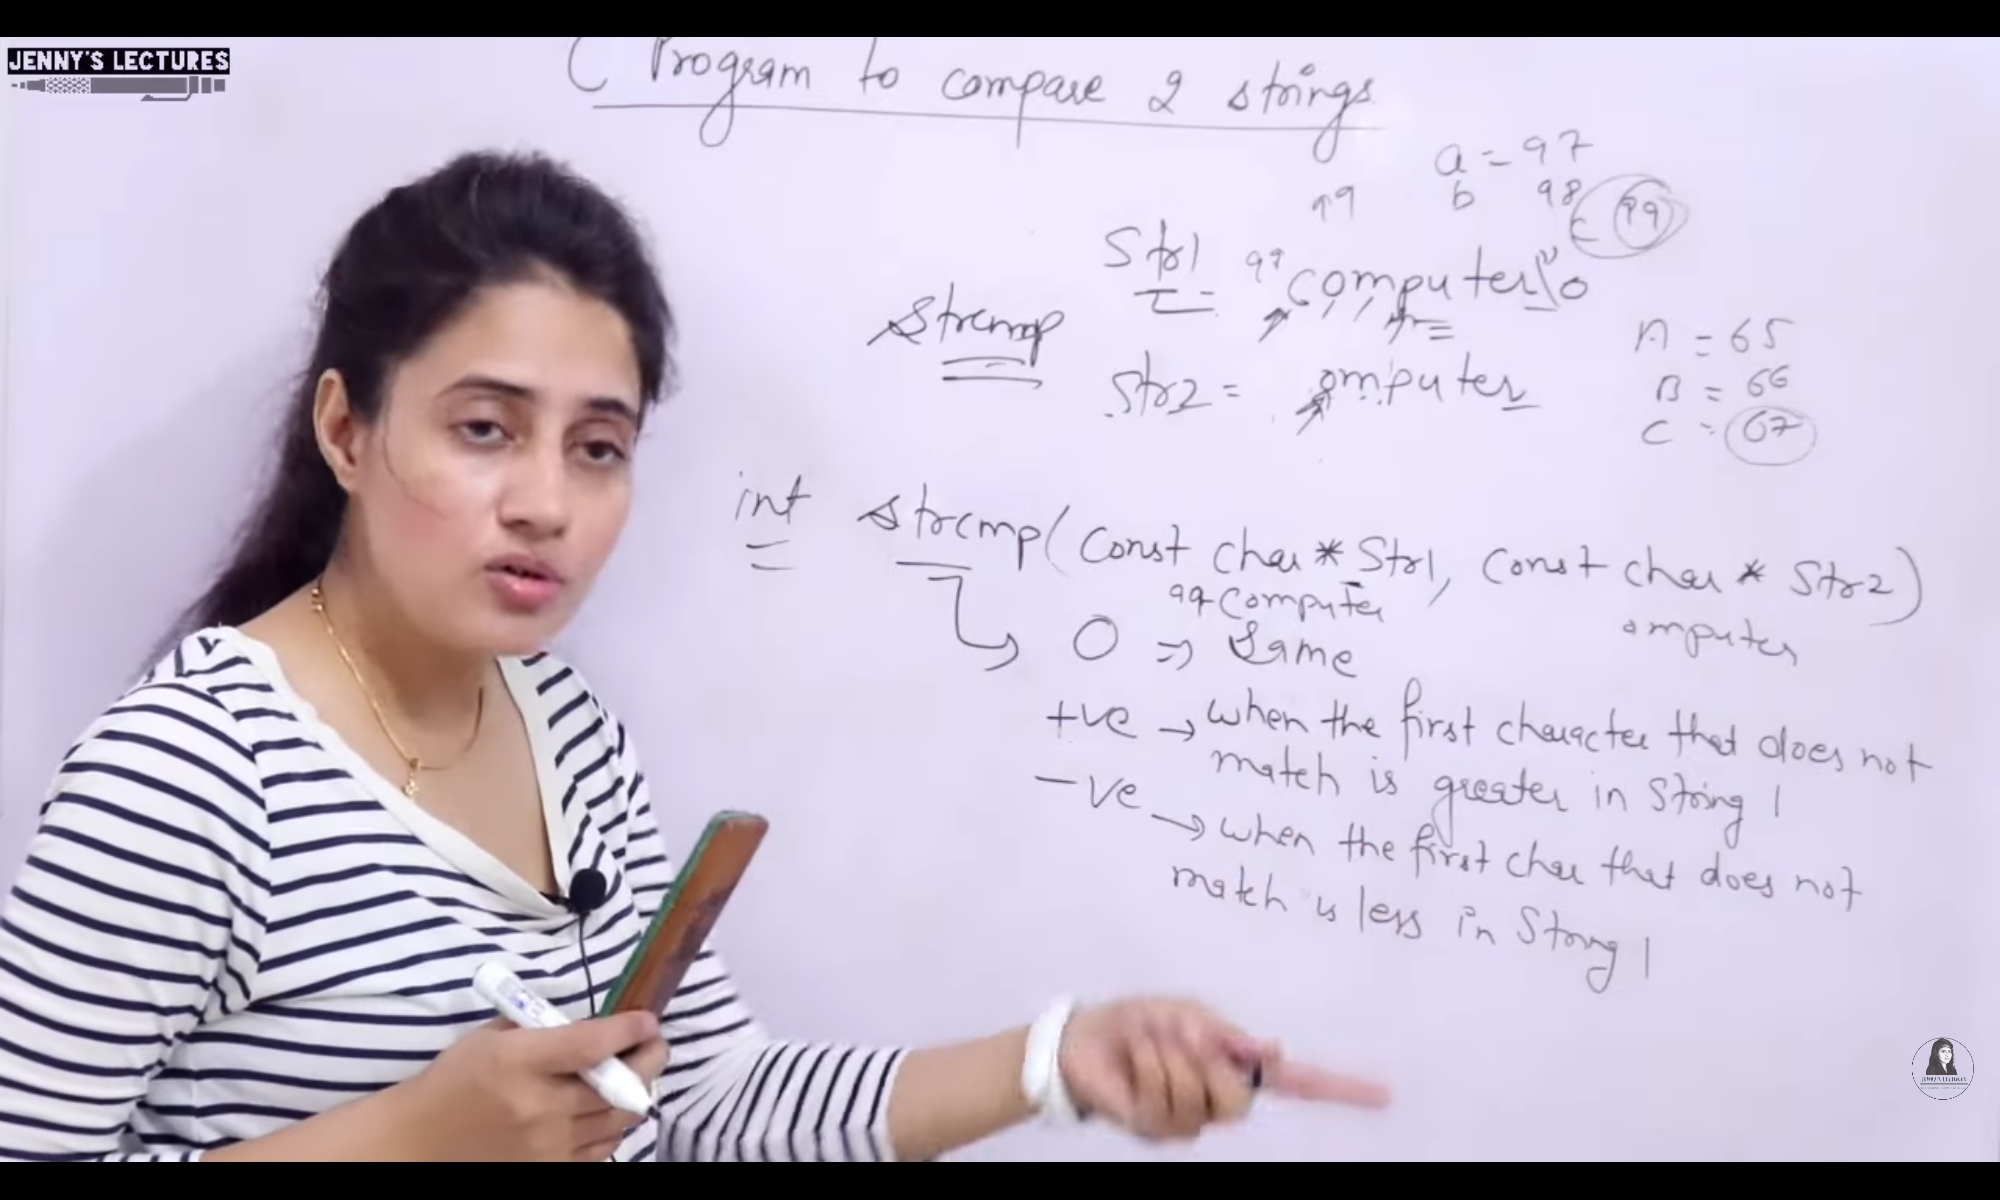 JENNY'S LECTURES
C Program to compare 2 strings
a = 97
99 b 98
c 99
Str1 = 99 computer\0"
Strcmp
Str2 = omputer
A = 65
B = 66
C = 67
int strcmp(const char * Str1, const char * Str2)
99 computer
omputer
0 => Same
+ve → when the first character that does not
match is greater in String 1
-ve → when the first char that does not
match is less in String 1
JENNY'S LECTURES